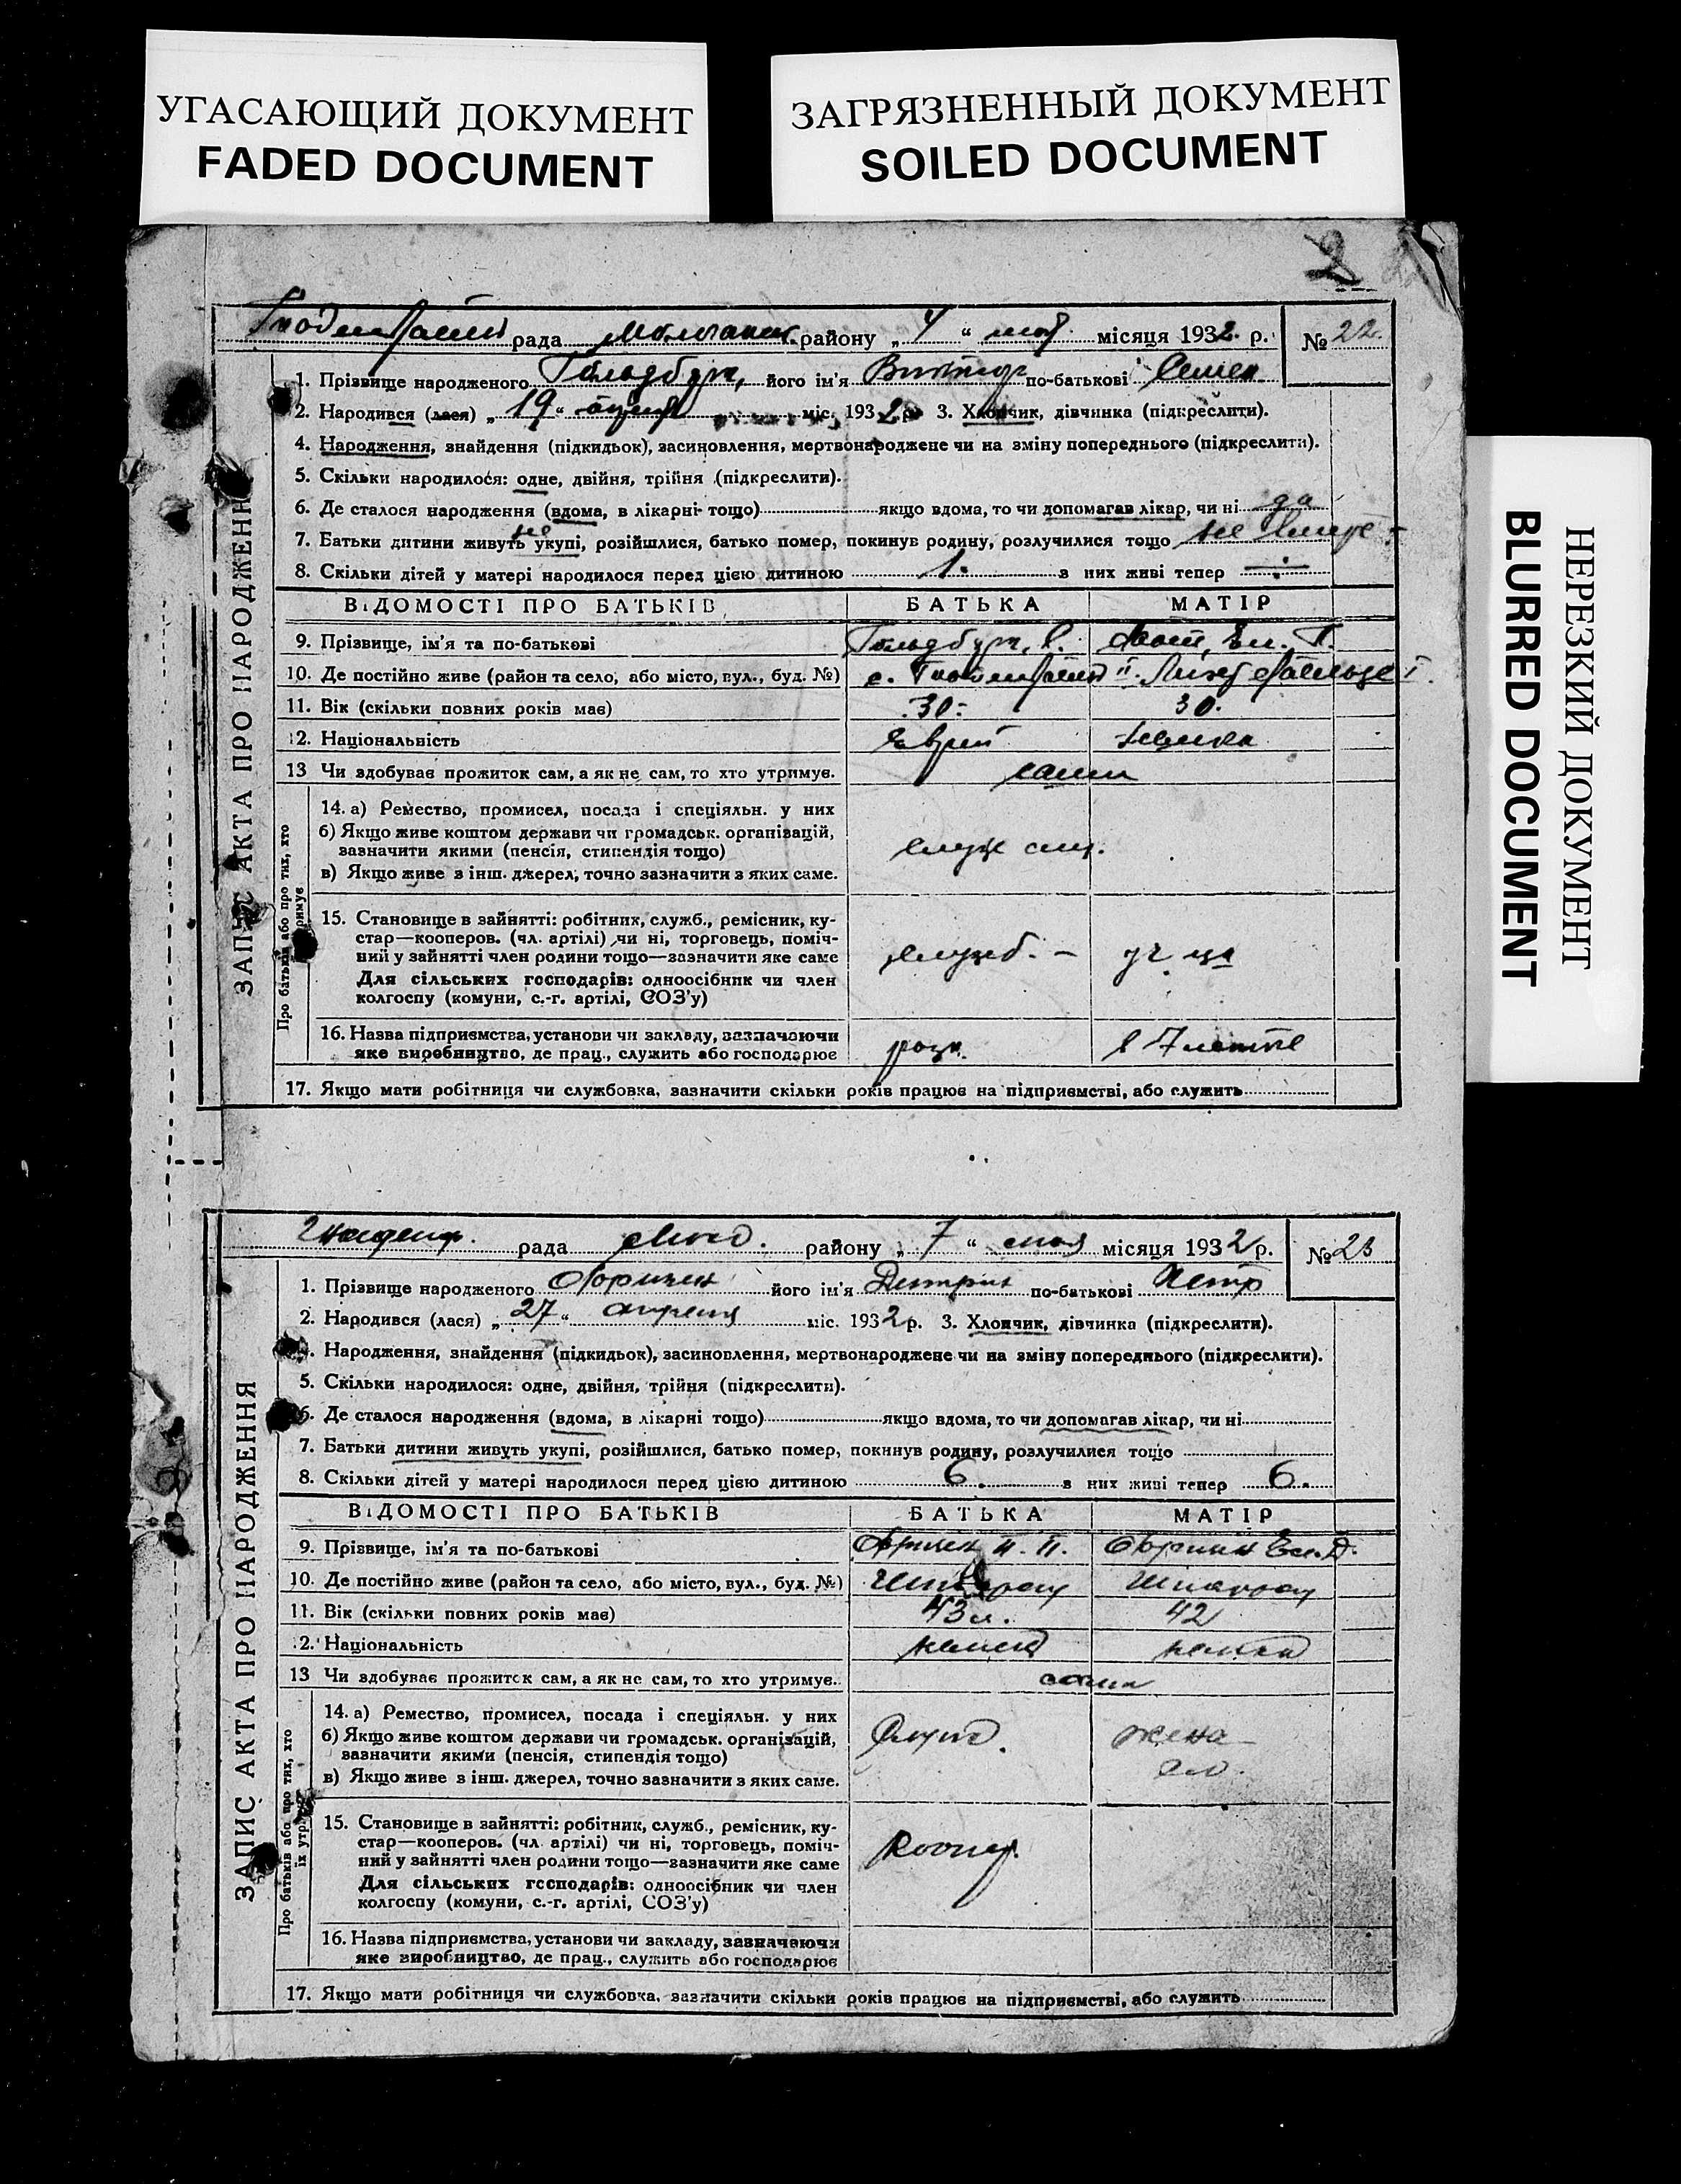 УГАСАЮЩИЙ ДОКУМЕНТ
FADED DOCUMENT
ЗАГРЯЗНЕННЫЙ ДОКУМЕНТ
SOILED DOCUMENT
НЕРЕЗКИЙ ДОКУМЕНТ
BLURRED DOCUMENT
2
ЗАПИС АКТА ПРО НАРОДЖЕННЯ
рада району „ 4 “ мая місяця 1932 р. № 22.
1. Прізвище народженого Гольдбурт, його ім'я Виктор по-батькові Семен
2. Народився (лася) „ 19 “ апреля міс. 1932 р. 3. Хлопчик, дівчинка (підкреслити).
4. Народження, знайдення (підкидьок), засиновлення, мертвонароджене чи на зміну попереднього (підкреслити).
5. Скільки народилося: одне, двійня, трійня (підкреслити).
6. Де сталося народження (вдома, в лікарні тощо) якщо вдома, то чи допомагав лікар, чи ні да
7. Батьки дитини живуть не укупі, розійшлися, батько помер, покинув родину, розлучилися тощо не
8. Скільки дітей у матері народилося перед цією дитиною 1. з них живі тепер
ВІДОМОСТІ ПРО БАТЬКІВ БАТЬКА МАТІР
9. Прізвище, ім'я та по-батькові
10. Де постійно живе (район та село, або місто, вул., буд. №) с.
11. Вік (скільки повних років має) 30. 30.
12. Національність Еврей немка
13 Чи здобуває прожиток сам, а як не сам, то хто утримує. сами
Про батьків або про тих, хто їх утримує
14. а) Ремество, промисел, посада і спеціяльн. у них
б) Якщо живе коштом держави чи громадськ. організацій,
зазначити якими (пенсія, стипендія тощо)
в) Якщо живе з інш. джерел, точно зазначити з яких саме.
15. Становище в зайнятті: робітник, служб., ремісник, ку-
стар—кооперов. (чл. артілі) чи ні, торговець, поміч-
ний у зайнятті член родини тощо—зазначити яке саме
служб. –
Для сільських господарів: одноосібник чи член
колгоспу (комуни, с.-г. артілі, СОЗ'у)
16. Назва підприємства, установи чи закладу, зазначаючи
яке виробництво, де прац., служить або господарює
17. Якщо мати робітниця чи службовка, зазначити скільки років працює на підприємстві, або служить
ЗАПИС АКТА ПРО НАРОДЖЕННЯ
рада району „ 7 “ мая місяця 1932 р. № 23
1. Прізвище народженого його ім'я по-батькові Петр
2. Народився (лася) „ 27 “ апреля міс. 1932 р. 3. Хлопчик, дівчинка (підкреслити).
4. Народження, знайдення (підкидьок), засиновлення, мертвонароджене чи на зміну попереднього (підкреслити).
5. Скільки народилося: одне, двійня, трійня (підкреслити).
6. Де сталося народження (вдома, в лікарні тощо) якщо вдома, то чи допомагав лікар, чи ні
7. Батьки дитини живуть укупі, розійшлися, батько помер, покинув родину, розлучилися тощо
8. Скільки дітей у матері народилося перед цією дитиною 6. з них живі тепер 6.
ВІДОМОСТІ ПРО БАТЬКІВ БАТЬКА МАТІР
9. Прізвище, ім'я та по-батькові
10. Де постійно живе (район та село, або місто, вул., буд. №)
11. Вік (скільки повних років має) 43 л. 42
12. Національність немец немка
13 Чи здобуває прожиток сам, а як не сам, то хто утримує. сами
Про батьків або про тих, хто їх утримує
14. а) Ремество, промисел, посада і спеціяльн. у них
б) Якщо живе коштом держави чи громадськ. організацій,
зазначити якими (пенсія, стипендія тощо)
жена
в) Якщо живе з інш. джерел, точно зазначити з яких саме.
15. Становище в зайнятті: робітник, служб., ремісник, ку-
стар—кооперов. (чл. артілі) чи ні, торговець, поміч-
ний у зайнятті член родини тощо—зазначити яке саме
Для сільських господарів: одноосібник чи член
колгоспу (комуни, с.-г. артілі, СОЗ'у)
16. Назва підприємства, установи чи закладу, зазначаючи
яке виробництво, де прац., служить або господарює
17. Якщо мати робітниця чи службовка, зазначити скільки років працює на підприємстві, або служить